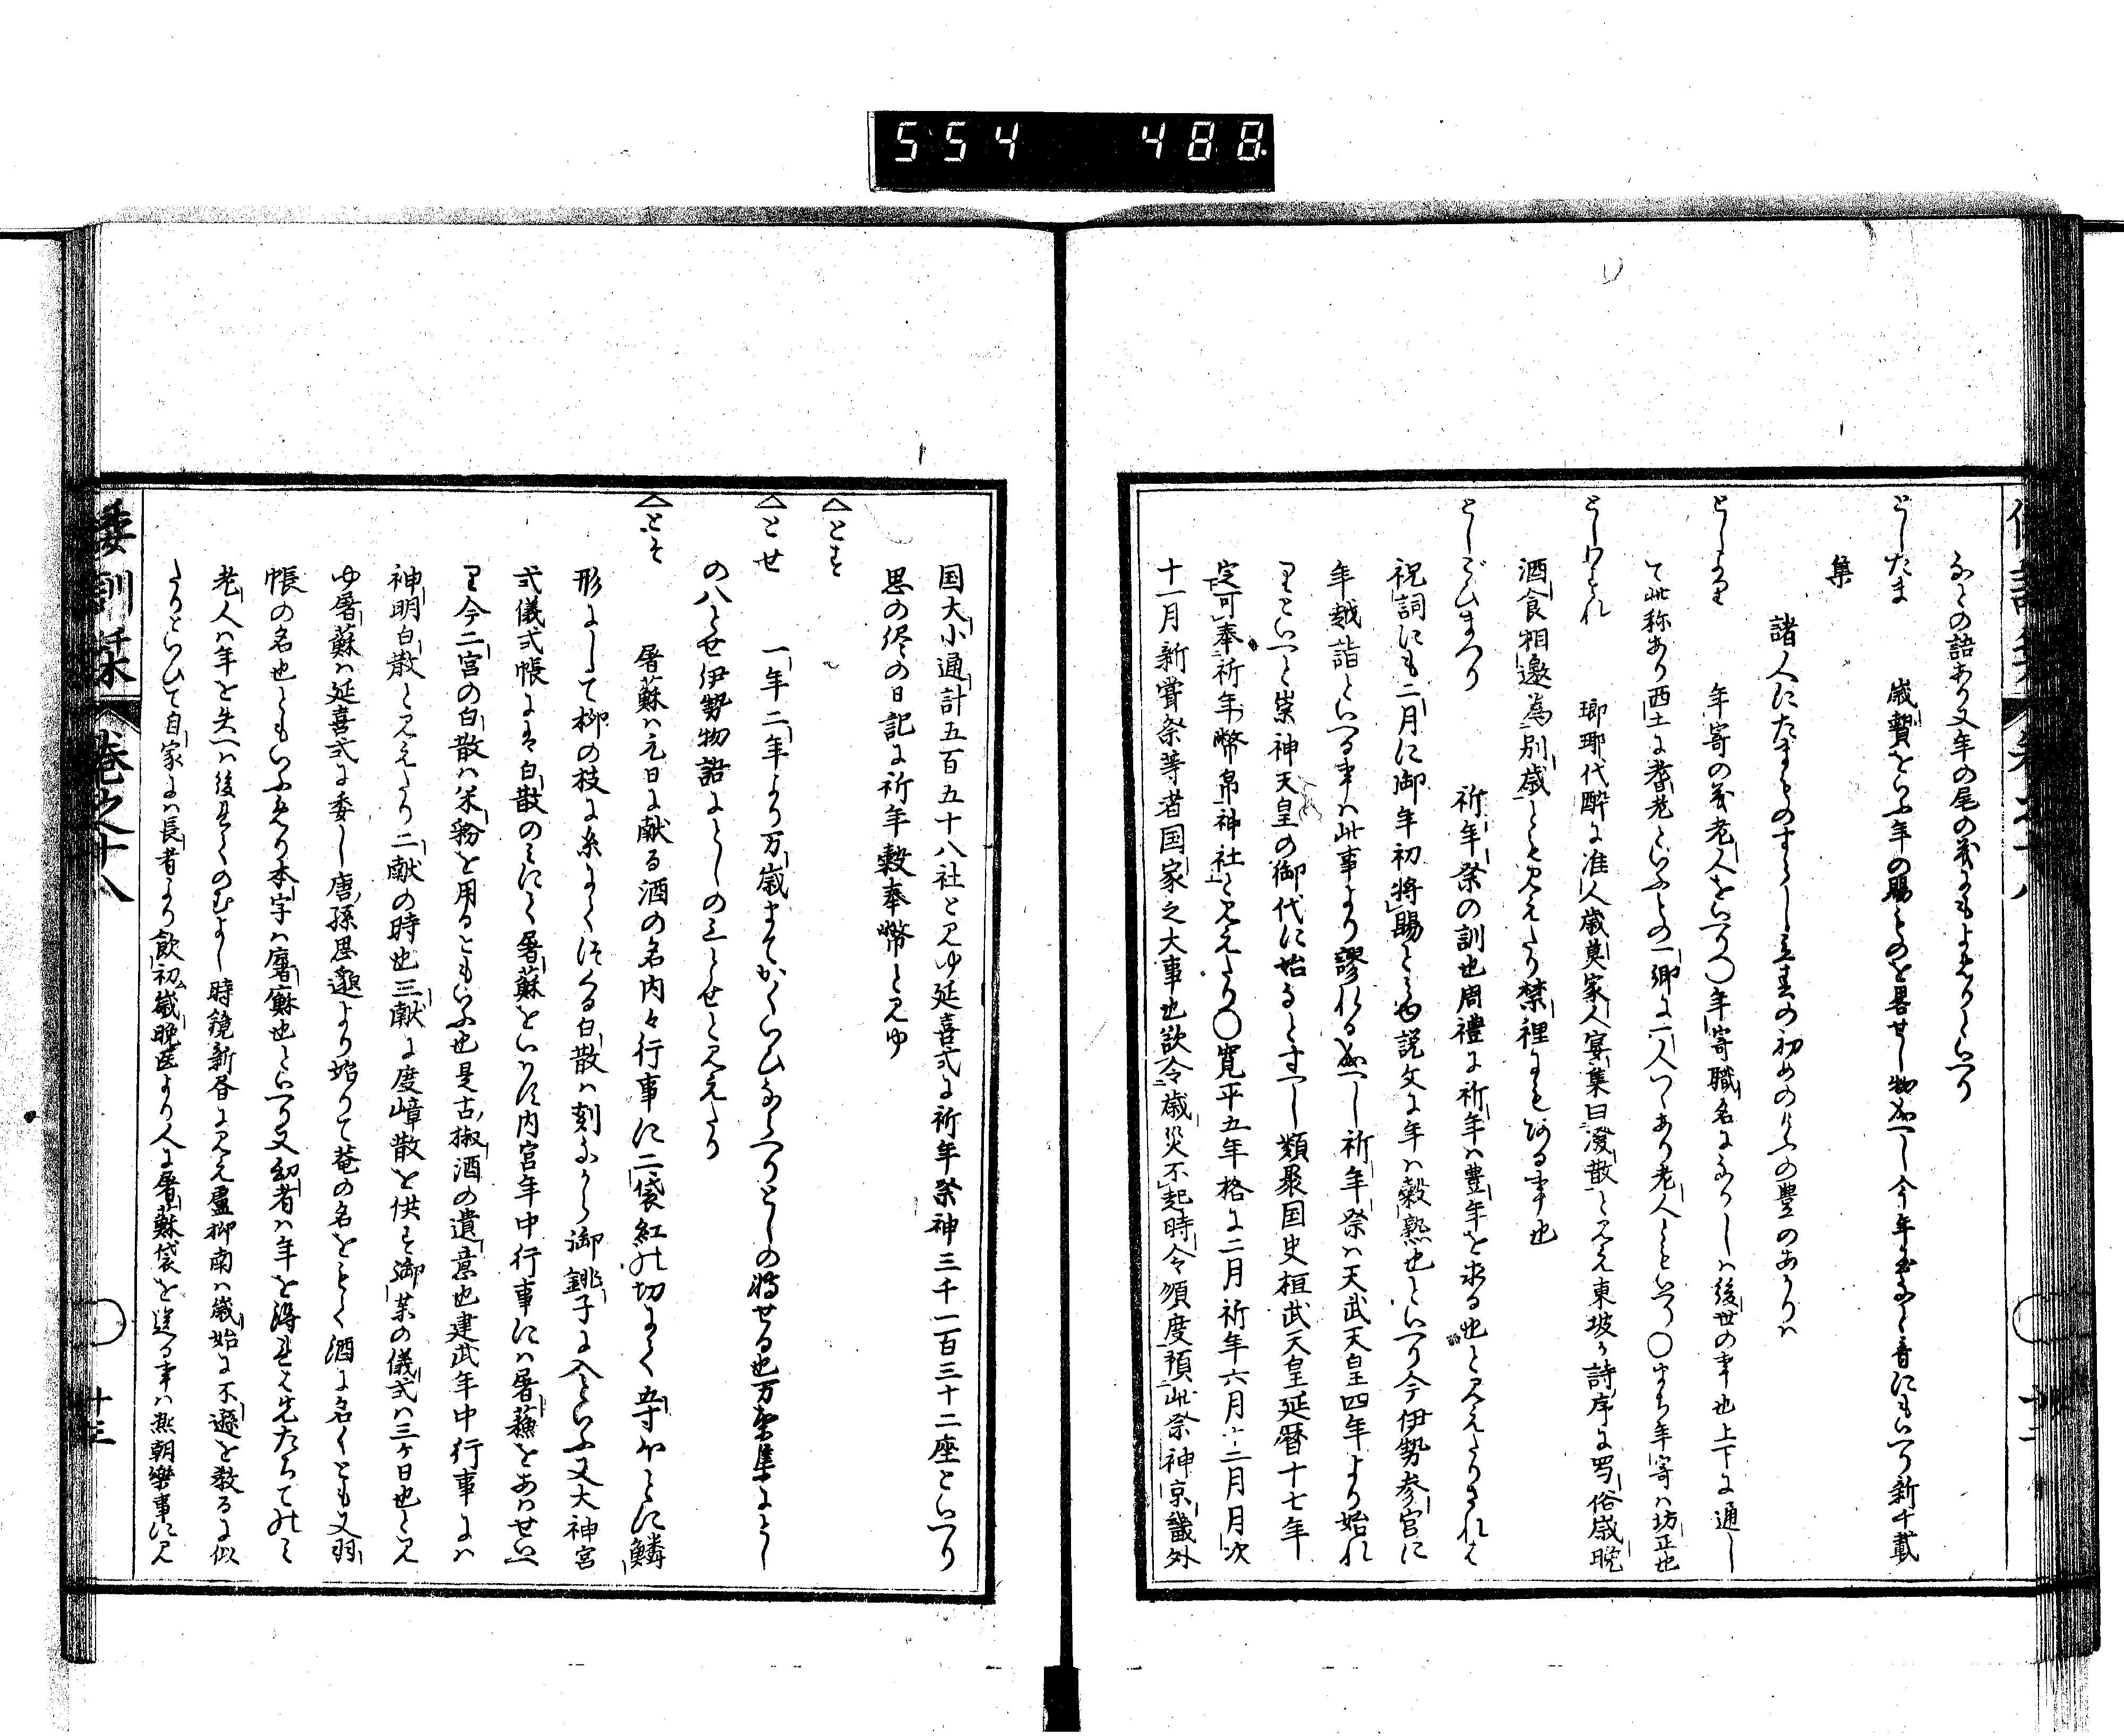 554 488
なとの語あり又年の尾の義にもよめりといへり
としたま 歳贄をいふ年の賜ものを畧せし物なるへし今年玉なと音にもいへり新千載
集
諸人にたまものすらし立春の初めのけふの豊のあかりは
としより 年寄の義老人をいへり〇年寄職名になりしは後世の事也上下に通し
て此称あり西土に耆老といふもの一郷に一人つゝあり老人ともいへり〇まち年寄は坊正也
としわすれ 瑯琊代酔に准人歳莫家人宴集曰潑散と見え東坡か詩序に蜀俗歳晩
酒食相邀為別歳とも見えたり禁裡にもある事也
としごひまつり 祈年祭の訓也周禮に祈年は豊年を求る也と見えたりされは
祝詞にも二月に御年初将賜とみゆ説文に年は穀熟也といへり今伊勢参宮に
年越詣といへる事は此事より謬れるなるへし祈年祭は天武天皇四年より始れ
りといへと崇神天皇の御代に始るとすへし類聚国史桓武天皇延暦十七年
定可奉祈年幣帛神社と見えたり〇寛平五年格に二月祈年六月十二月月次
十一月新甞祭等者国家之大事也欲令歳災不起時令順度預此祭神京畿外
国大小通計五百五十八社と見ゆ延喜式に祈年祭神三千一百三十二座といへり
思の侭の日記に祈年穀奉幣と見ゆ
△とす
△とせ 一年二年より万歳まてかくいひならへりとしの将せる也万葉集にとし
の八とせ伊勢物語にとしの三とせと見えたり
△とそ 屠蘇は元日に献る酒の名内々行事に二袋紅の切にて五寸はかりに鱗
形にして柳の枝に糸にてつくる白散は刻なから御銚子に入といふ又大神宮
式儀式帳には白散のみにて屠蘇をいはす内宮年中行事には屠蘇をあはせいへ
り今二宮の白散は米粉を用るともいふ也是古椒酒の遺意也建武年中行事には
神明白散と見えたり二献の時也三献に度嶂散を供す御薬の儀式は三ヶ日也と見
ゆ屠蘇は延喜式に委し唐孫思邈より始りて菴の名をもて酒に名くとも又羽
帳の名也ともいふなり本字は廜㢝也といへり又幼者は年を得れは先たちてのみ
老人は年を失へは後れてのむよし時鏡新書に見え盧柳南は歳始に不遜を教るに似
たりといひて自家には長者より飲初む歳晩医より人に屠蘇袋を送る事は熙朝樂事に見
倭訓栞 巻之十八 十三